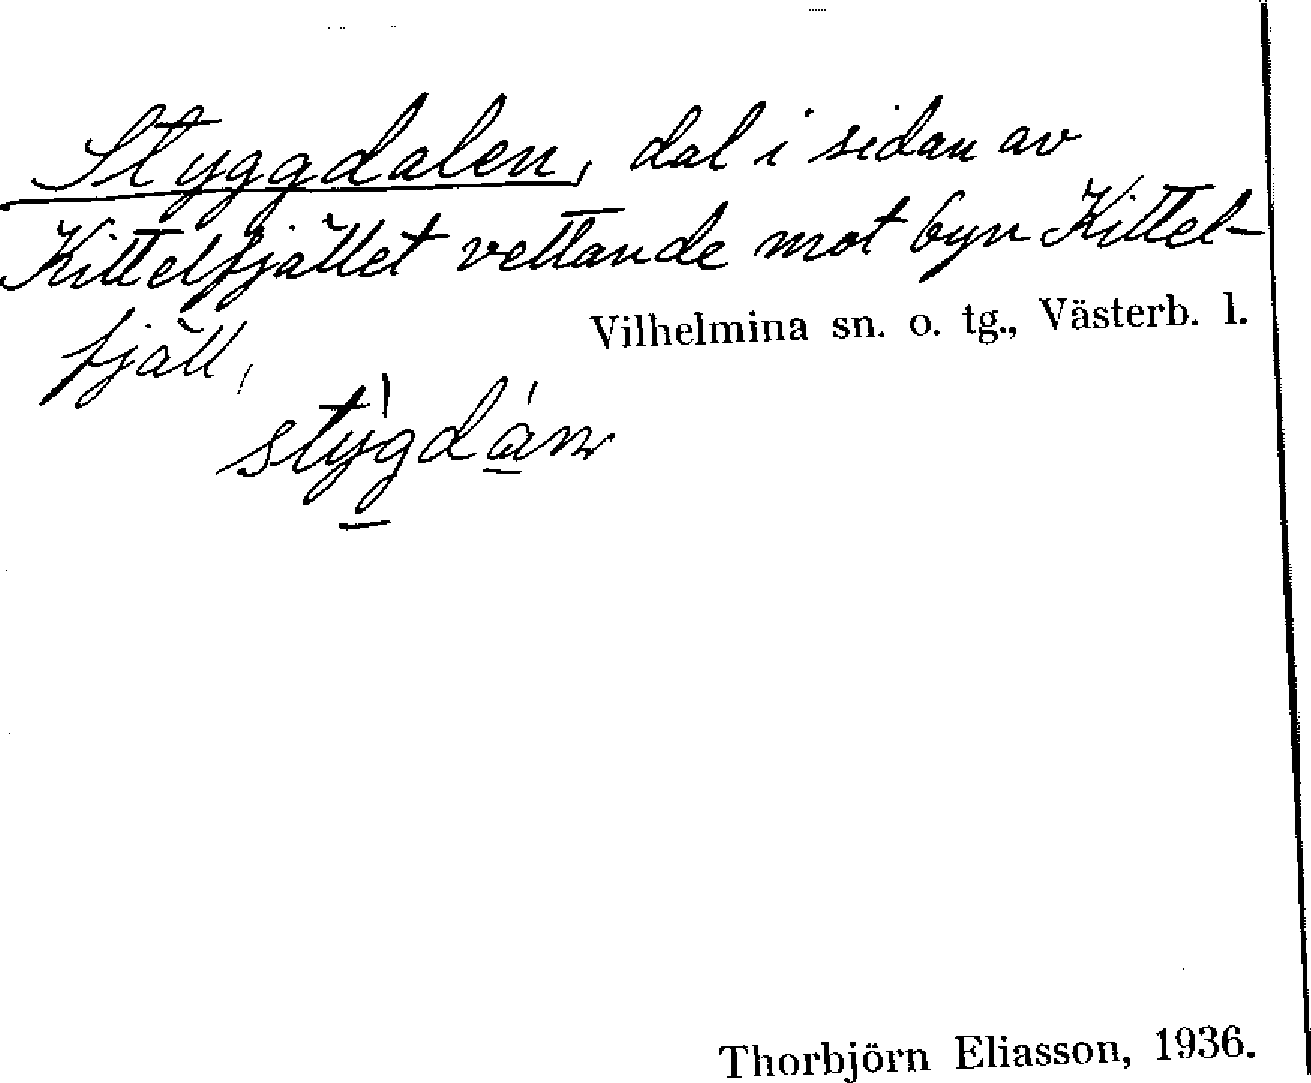 Styggdalen, dal i sidan av
Kittelfjället vettande mot byn Kittel-
fjäll,
Vilhelmina sn. o. tg., Västerb. l.
Thorbjörn Eliasson, 1936.